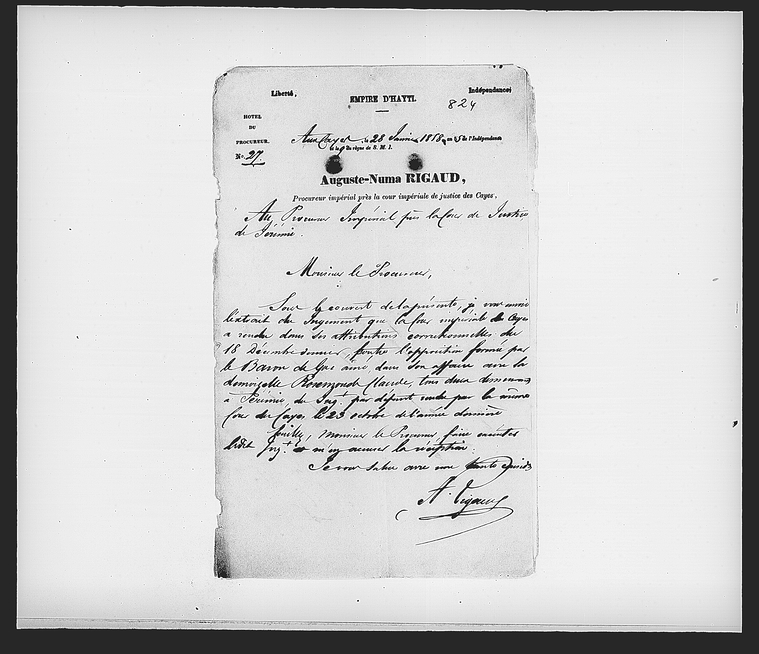 Liberté,
Indépendance
EMPIRE D'HAYTI.
824
HOTEL
DU
PROCUREUR.
No. 27.
Aux Cayes, le 28 Janvier 1858, an 55 de l'Indépendance
et le 9 du règne de S. M. I.
Auguste-Numa RIGAUD,
Procureur impérial près la cour impériale de justice des Cayes,
Au Procureur Impérial près la Cour de Justice
de Jérémie.
Monsieur le Procureur,
Sous le couvert de la présente, je vous
l'extrait du Jugement que la Cour impériale des Cayes
a rendu dans ses attributions correctionnelles du
18 Décembre dernier, l'opposition formée par
le Baron de Gas ainé, dans son affaire avec la
demoizelle Rosemonde Claude, tous deux demeurans
à Jérémie, du Jugt. par défaut rendu par la même
Cour des Cayes le 23 octobre de l'année dernière
Veuillez, Monsieur le Procureur, faire exécuter
ledit Jugt. et m'en accuser la réception.
Je vous salue avec une haute
A. Rigaud